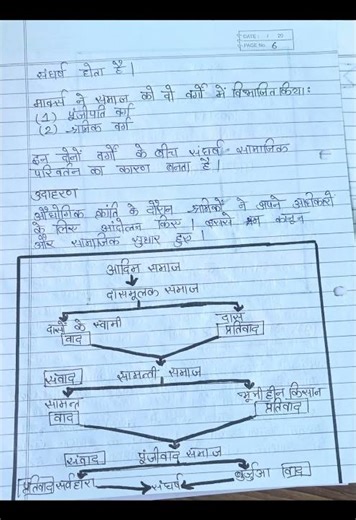 DATE: / 20
PAGE No. 6
संघर्ष होता है।
मार्क्स ने समाज को दो वर्गों में विभाजित किया:
(1) पूंजीपति वर्ग
(2) श्रमिक वर्ग
इन दोनों वर्गों के बीच संघर्ष सामाजिक
परिवर्तन का कारण बनता है।
उदाहरण
औद्योगिक क्रांति के दौरान श्रमिकों ने अपने अधिकारों
के लिए आंदोलन किए। इससे श्रम कानून
और सामाजिक सुधार हुए।
आदिम समाज
दासमूलक समाज
दासों के स्वामी दास
वाद प्रतिवाद
संवाद सामन्ती समाज
सामन्त भूमीहीन किसान
वाद प्रतिवाद
संवाद पूंजीवाद समाज
प्रतिवाद सर्वहारा संघर्ष बुर्जुआ वाद